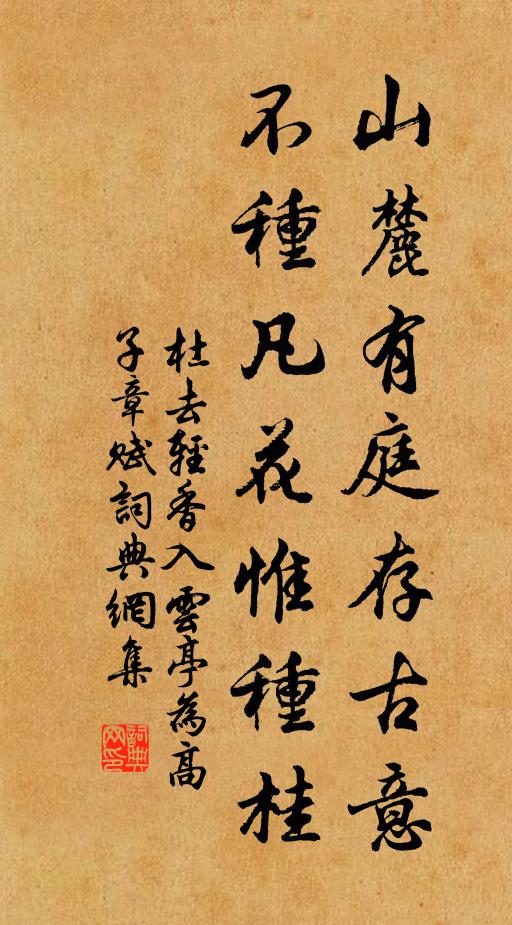 山麓有庭存古意
不種凡花惟種桂
杜去輕香入雲亭為高
子章賦詞典網集
詞典網印